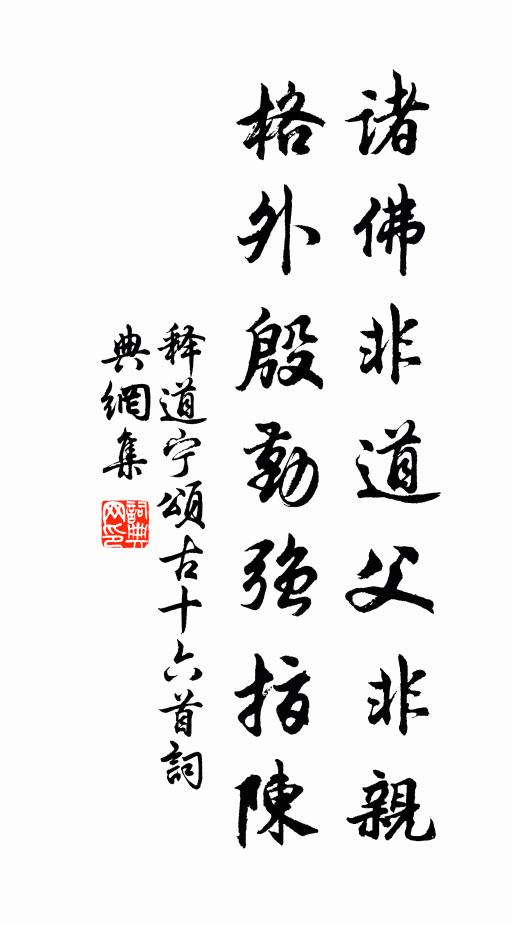 諸佛非道父非親
格外殷勤強指陳
释道宁頌古十六首詞
典網集
詞典网印